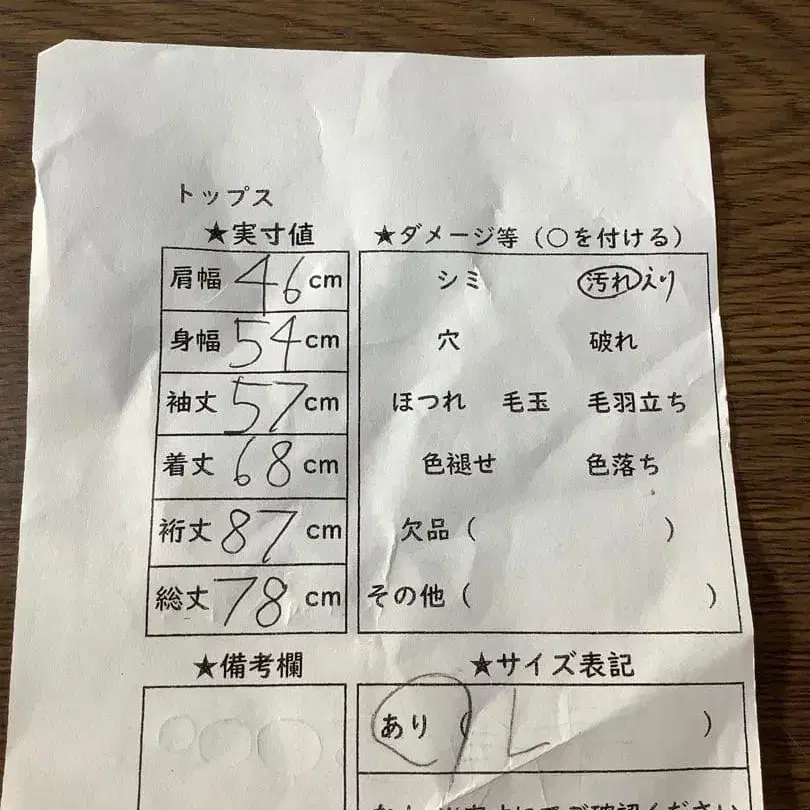 トップス
★実寸値
肩幅 46 cm
身幅 54 cm
袖丈 57 cm
着丈 68 cm
裄丈 87 cm
総丈 78 cm
★ダメージ等（○を付ける）
シミ 汚れ えり
穴 破れ
ほつれ 毛玉 毛羽立ち
色褪せ 色落ち
欠品（ ）
その他（ ）
★備考欄
★サイズ表記
あり（ L ）